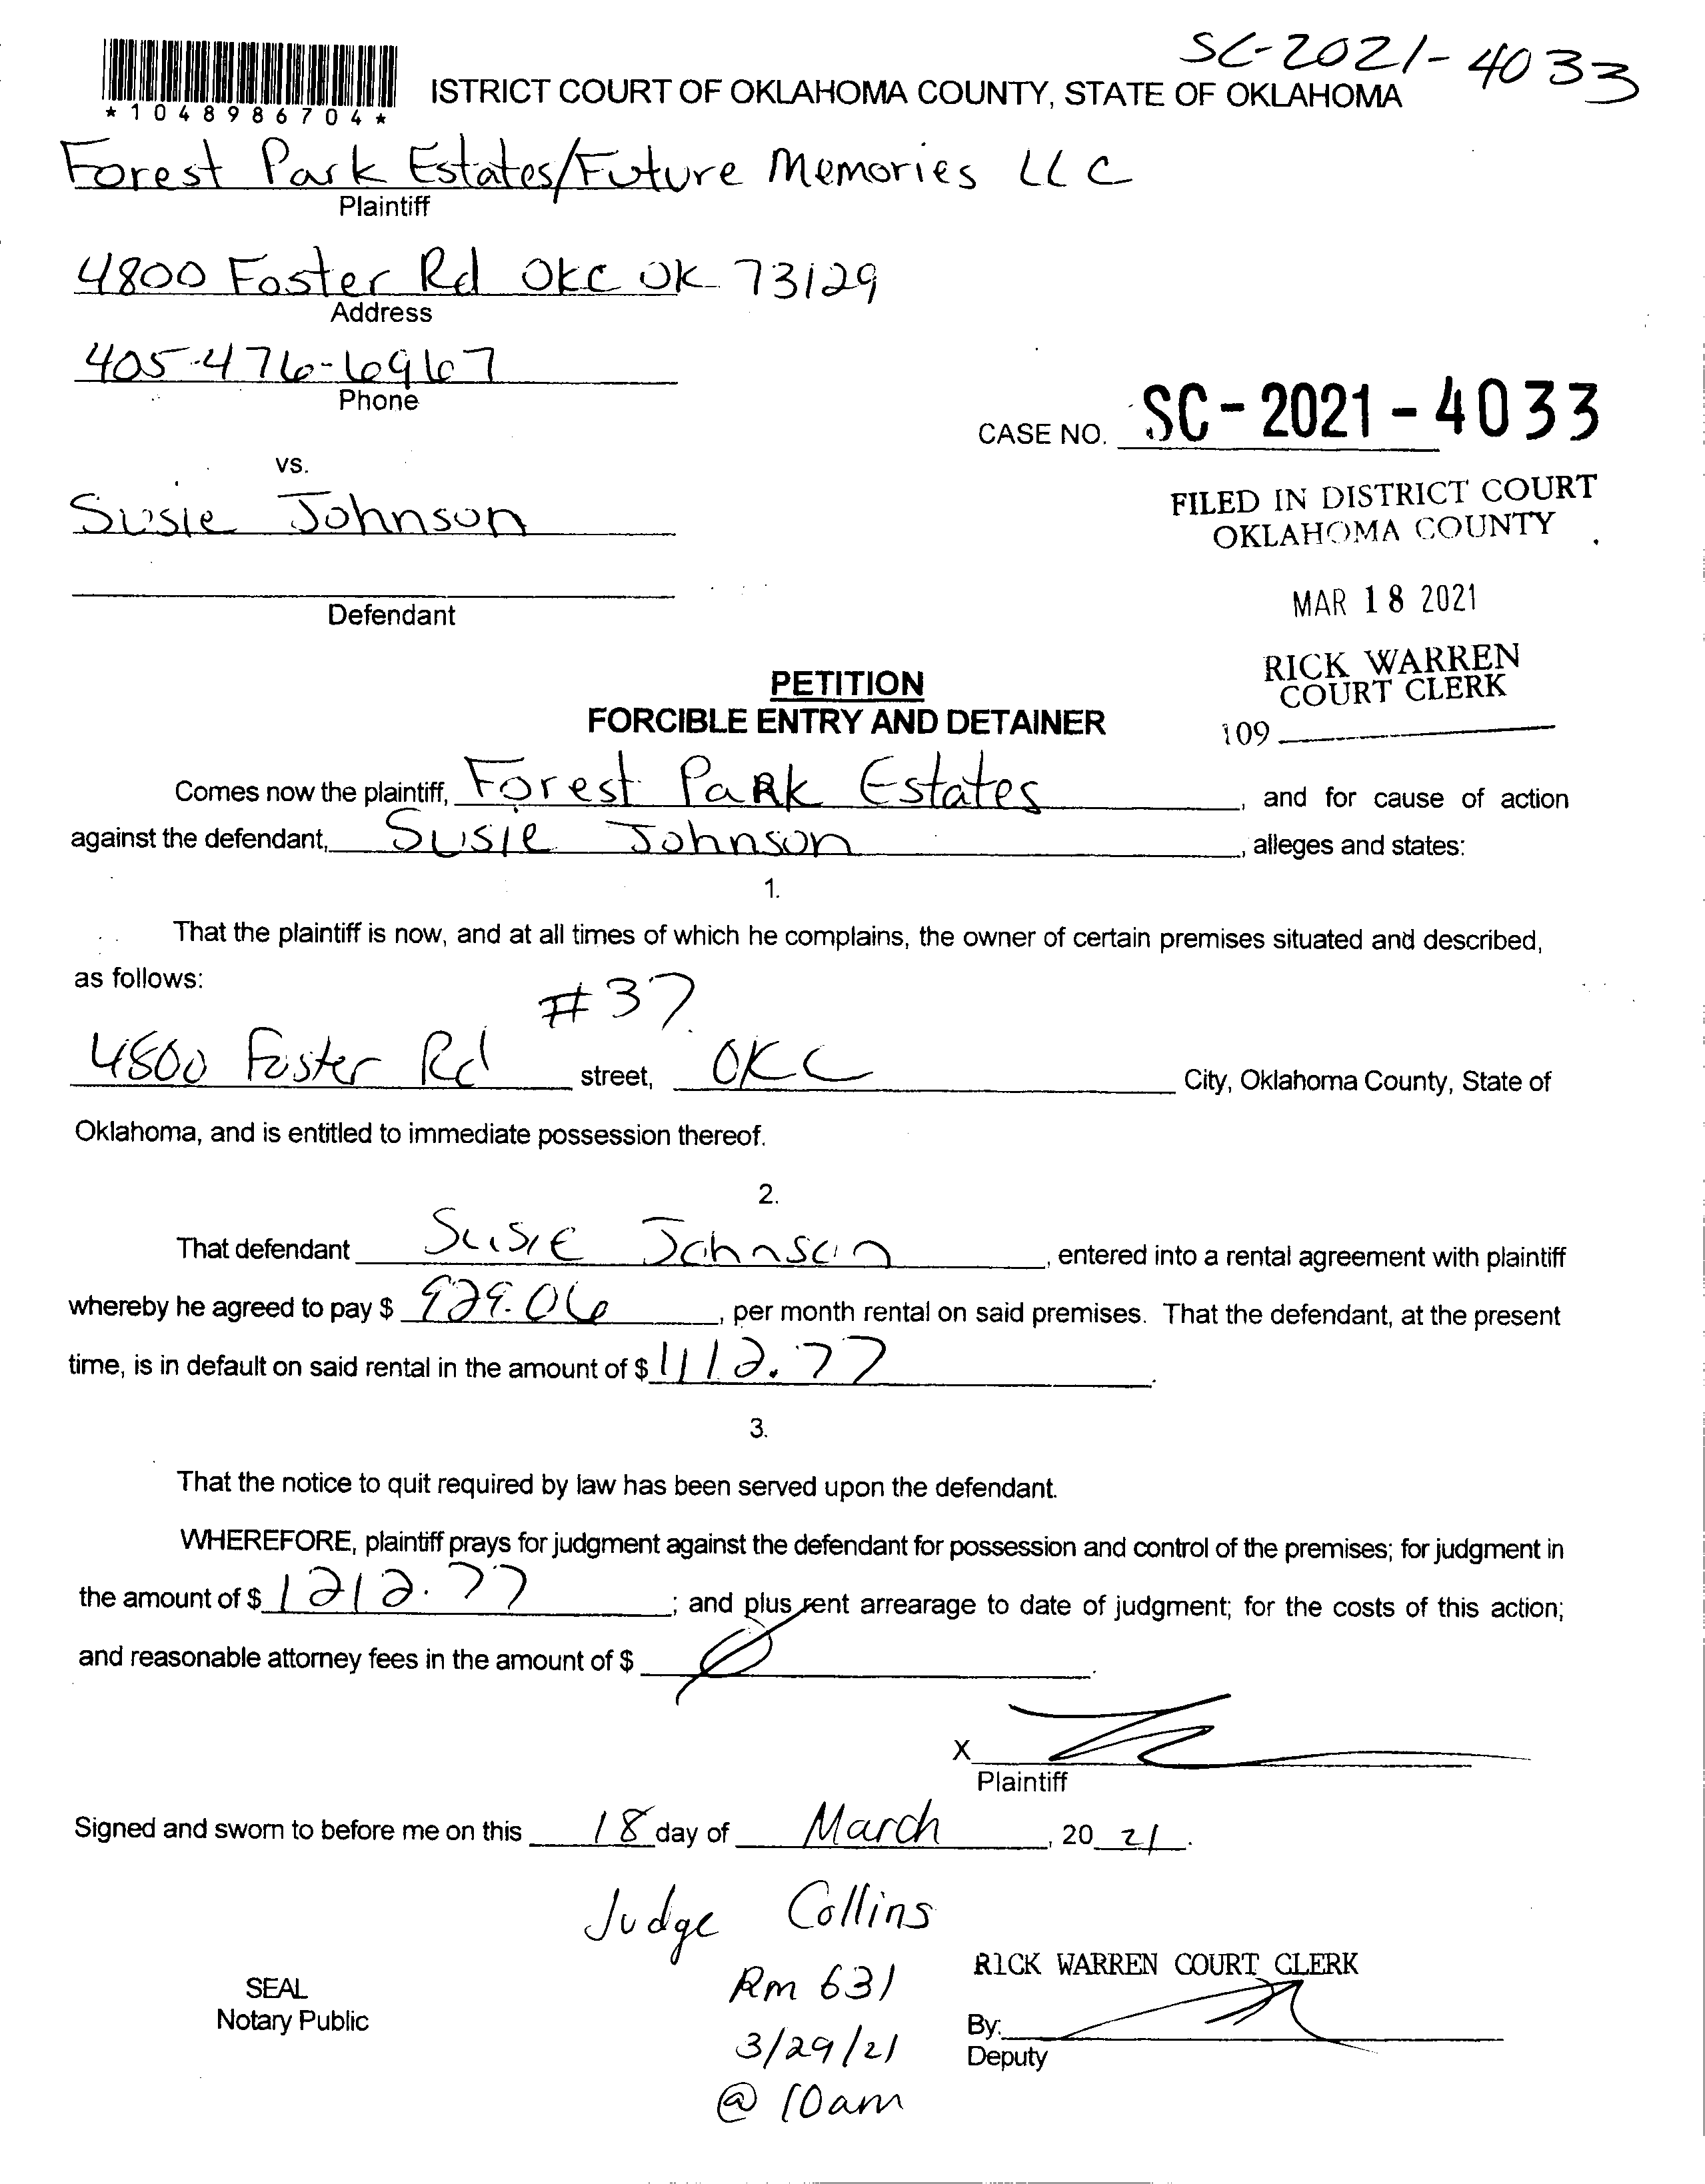 SC-2021-4033
*1048986704*
ISTRICT COURT OF OKLAHOMA COUNTY, STATE OF OKLAHOMA
Forest Park Estates/Future Memories LLC
Plaintiff
4800 Foster Rd OKC OK 73129
Address
405-476-6967
Phone
CASE NO. SC-2021-4033
vs.
Susie Johnson
FILED IN DISTRICT COURT
OKLAHOMA COUNTY
Defendant
MAR 18 2021
RICK WARREN
COURT CLERK
109
PETITION
FORCIBLE ENTRY AND DETAINER
Comes now the plaintiff, Forest PaRk Estates, and for cause of action
against the defendant, Susie Johnson, alleges and states:
1.
That the plaintiff is now, and at all times of which he complains, the owner of certain premises situated and described,
as follows:
#37
4800 Foster Rd street, OKC City, Oklahoma County, State of
Oklahoma, and is entitled to immediate possession thereof.
2.
That defendant Susie Johnson, entered into a rental agreement with plaintiff
whereby he agreed to pay $ 929.06, per month rental on said premises. That the defendant, at the present
time, is in default on said rental in the amount of $ 1112.77.
3.
That the notice to quit required by law has been served upon the defendant.
WHEREFORE, plaintiff prays for judgment against the defendant for possession and control of the premises; for judgment in
the amount of $ 1212.77; and plus rent arrearage to date of judgment; for the costs of this action;
and reasonable attorney fees in the amount of $
X
Plaintiff
Signed and sworn to before me on this 18 day of March, 20 21.
Judge Collins
Rm 631
3/29/21
@ 10am
SEAL
Notary Public
RICK WARREN COURT CLERK
By:
Deputy